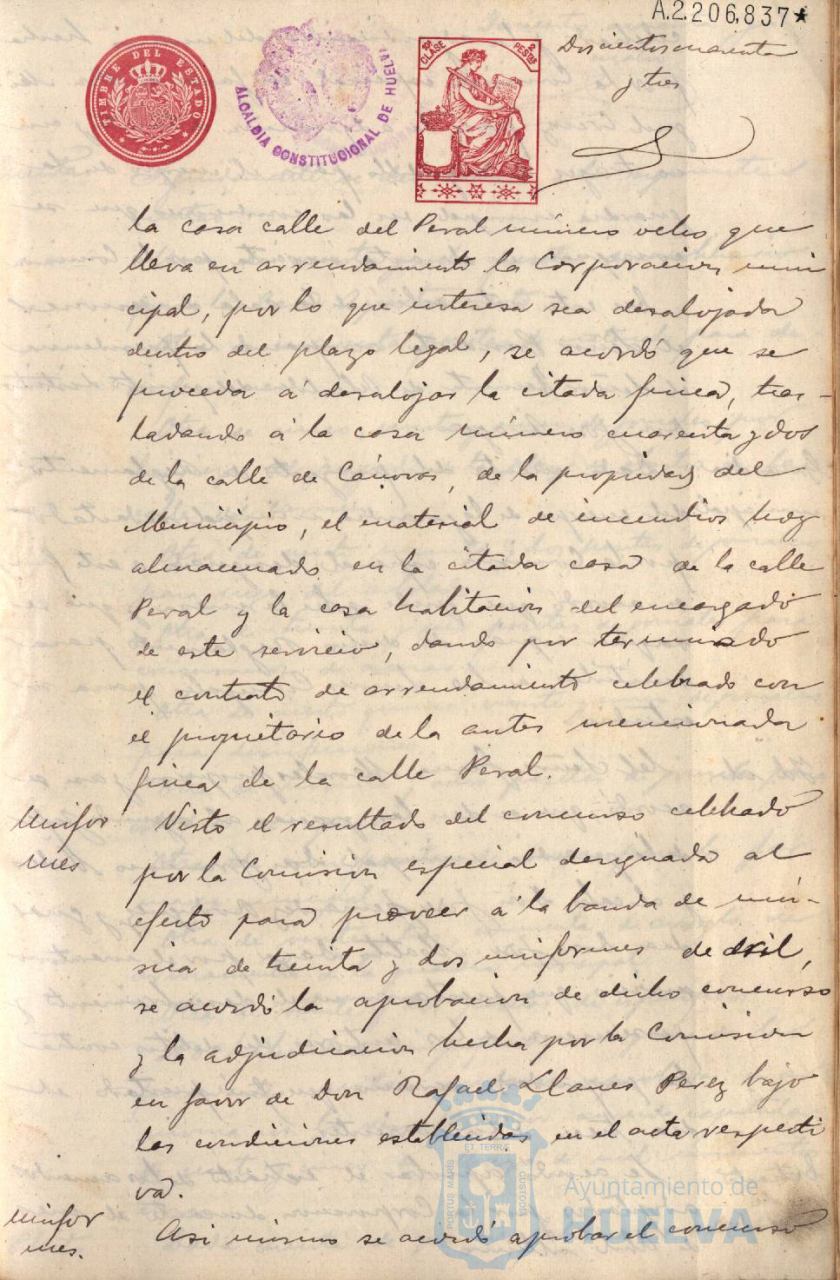 A.2.206,837★
TIMBRE DEL ESTADO
ALCALDIA CONSTITUCIONAL DE HUELVA
10ª CLASE
2 PESTAS
Doscientos cuarenta
y tres
la casa calle del Peral número ocho que
lleva en arrendamiento la Corporacion muni
cipal, por lo que interesa sea desalojada
dentro del plazo legal, se acordó que se
proceda á desalojar la citada finca, tras-
ladando á la casa número cuarenta y dos
de la calle de Cánovas, de la propiedad del
Municipio, el material de incendios hoy
almacenado en la citada casa de la calle
Peral y la casa habitacion del encargado
de este servicio, dando por terminado
el contrato de arrendamiento celebrado con
el propietario de la antes mencionada
finca de la calle Peral.
Unifor
mes
Visto el resultado del concurso celebrado
por la Comision especial designada al
efecto para proveer á la banda de mú-
sica de treinta y dos uniformes de dril,
se acordó la aprobacion de dicho concurso
y la adjudicacion hecha por la Comision
en favor de Don Rafael Llanes Perez bajo
las condiciones establecidas en el acta respecti
va.
Unifor
mes.
Asi mismo se acordó aprobar el concurso
PORTUS MARIS ET TERRAE CUSTODIA
Ayuntamiento de
HUELVA